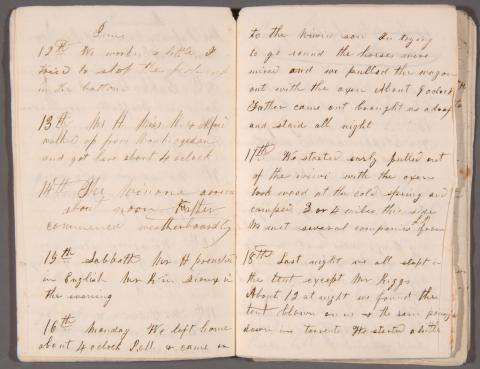 June
12th We worked a little I
tried to stop the
in the bottom
13th Mr H Miss K. &
walked up from
and got here about 4 oclock
14th The
about noon Father
commenced weatherboarding
15th Sabbath Mr H preached
in English Mr R in Sioux in
the evening
16th Monday We left home
about 4 oclock P.M. & came on
to the wiwi son In trying
to go round the horses were
mired and we pulled the wagon
out with the oxen About 9 oclock
Father came out brought us a
and staid all night
17th We started early pulled out
of the wiwi with the oxen
took wood at the cold spring and
camped 3 or 4 miles this side
We met several companies from
18th Last night we all slept in
the tent except Mr Riggs
About 12 at night we found the
tent blown on us & the rain pouring
down in torrents We started a little